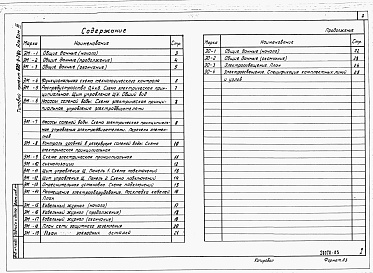 Содержание
Марка Наименование Стр.
ЭМ-1 Общие данные (начало) 3
ЭМ-2 Общие данные (продолжение) 4
ЭМ-3 Общие данные (окончание) 5
ЭМ-4 Функциональная схема технологического контроля 6
Схема электрическая принци-
пиальная. Щит управления Общий вид
ЭМ-6 Насосы соленой воды. Схема электрическая принци-
пиальная управления электродвигателя
ЭМ-7 Насосы соленой воды. Схема электрическая принципиаль-
ная управления электродвигателя. Перечень элемен-
тов
ЭМ-8 Контроль уровней в резервуаре соленой воды. Схема 10
электрическая принципиальная
ЭМ-9 Схема электрическая принципиальная 11
сигнализации 12
ЭМ-11 Щит управления Схема подключений 13
ЭМ-12 Щит управления Схема подключений 14
Схема подключений 15
ЭМ-14 Размещение электрооборудования. Прокладка кабелей
План
ЭМ-15 Кабельный журнал (начало) 17
ЭМ-16 Кабельный журнал (продолжение) 18
ЭМ-17 Кабельный журнал (окончание)
ЭМ-18 План сети защитного заземления 20
План закладных деталей 21
Продолжение
Марка Наименование Стр.
ЭО-1 Общие данные (начало) 22
ЭО-2 Общие данные (окончание) 23
ЭО-3 Электроосвещение. План 24
ЭО-4 Электроосвещение. Спецификация комплектных линий 25
и узлов
Копировал Формат А3